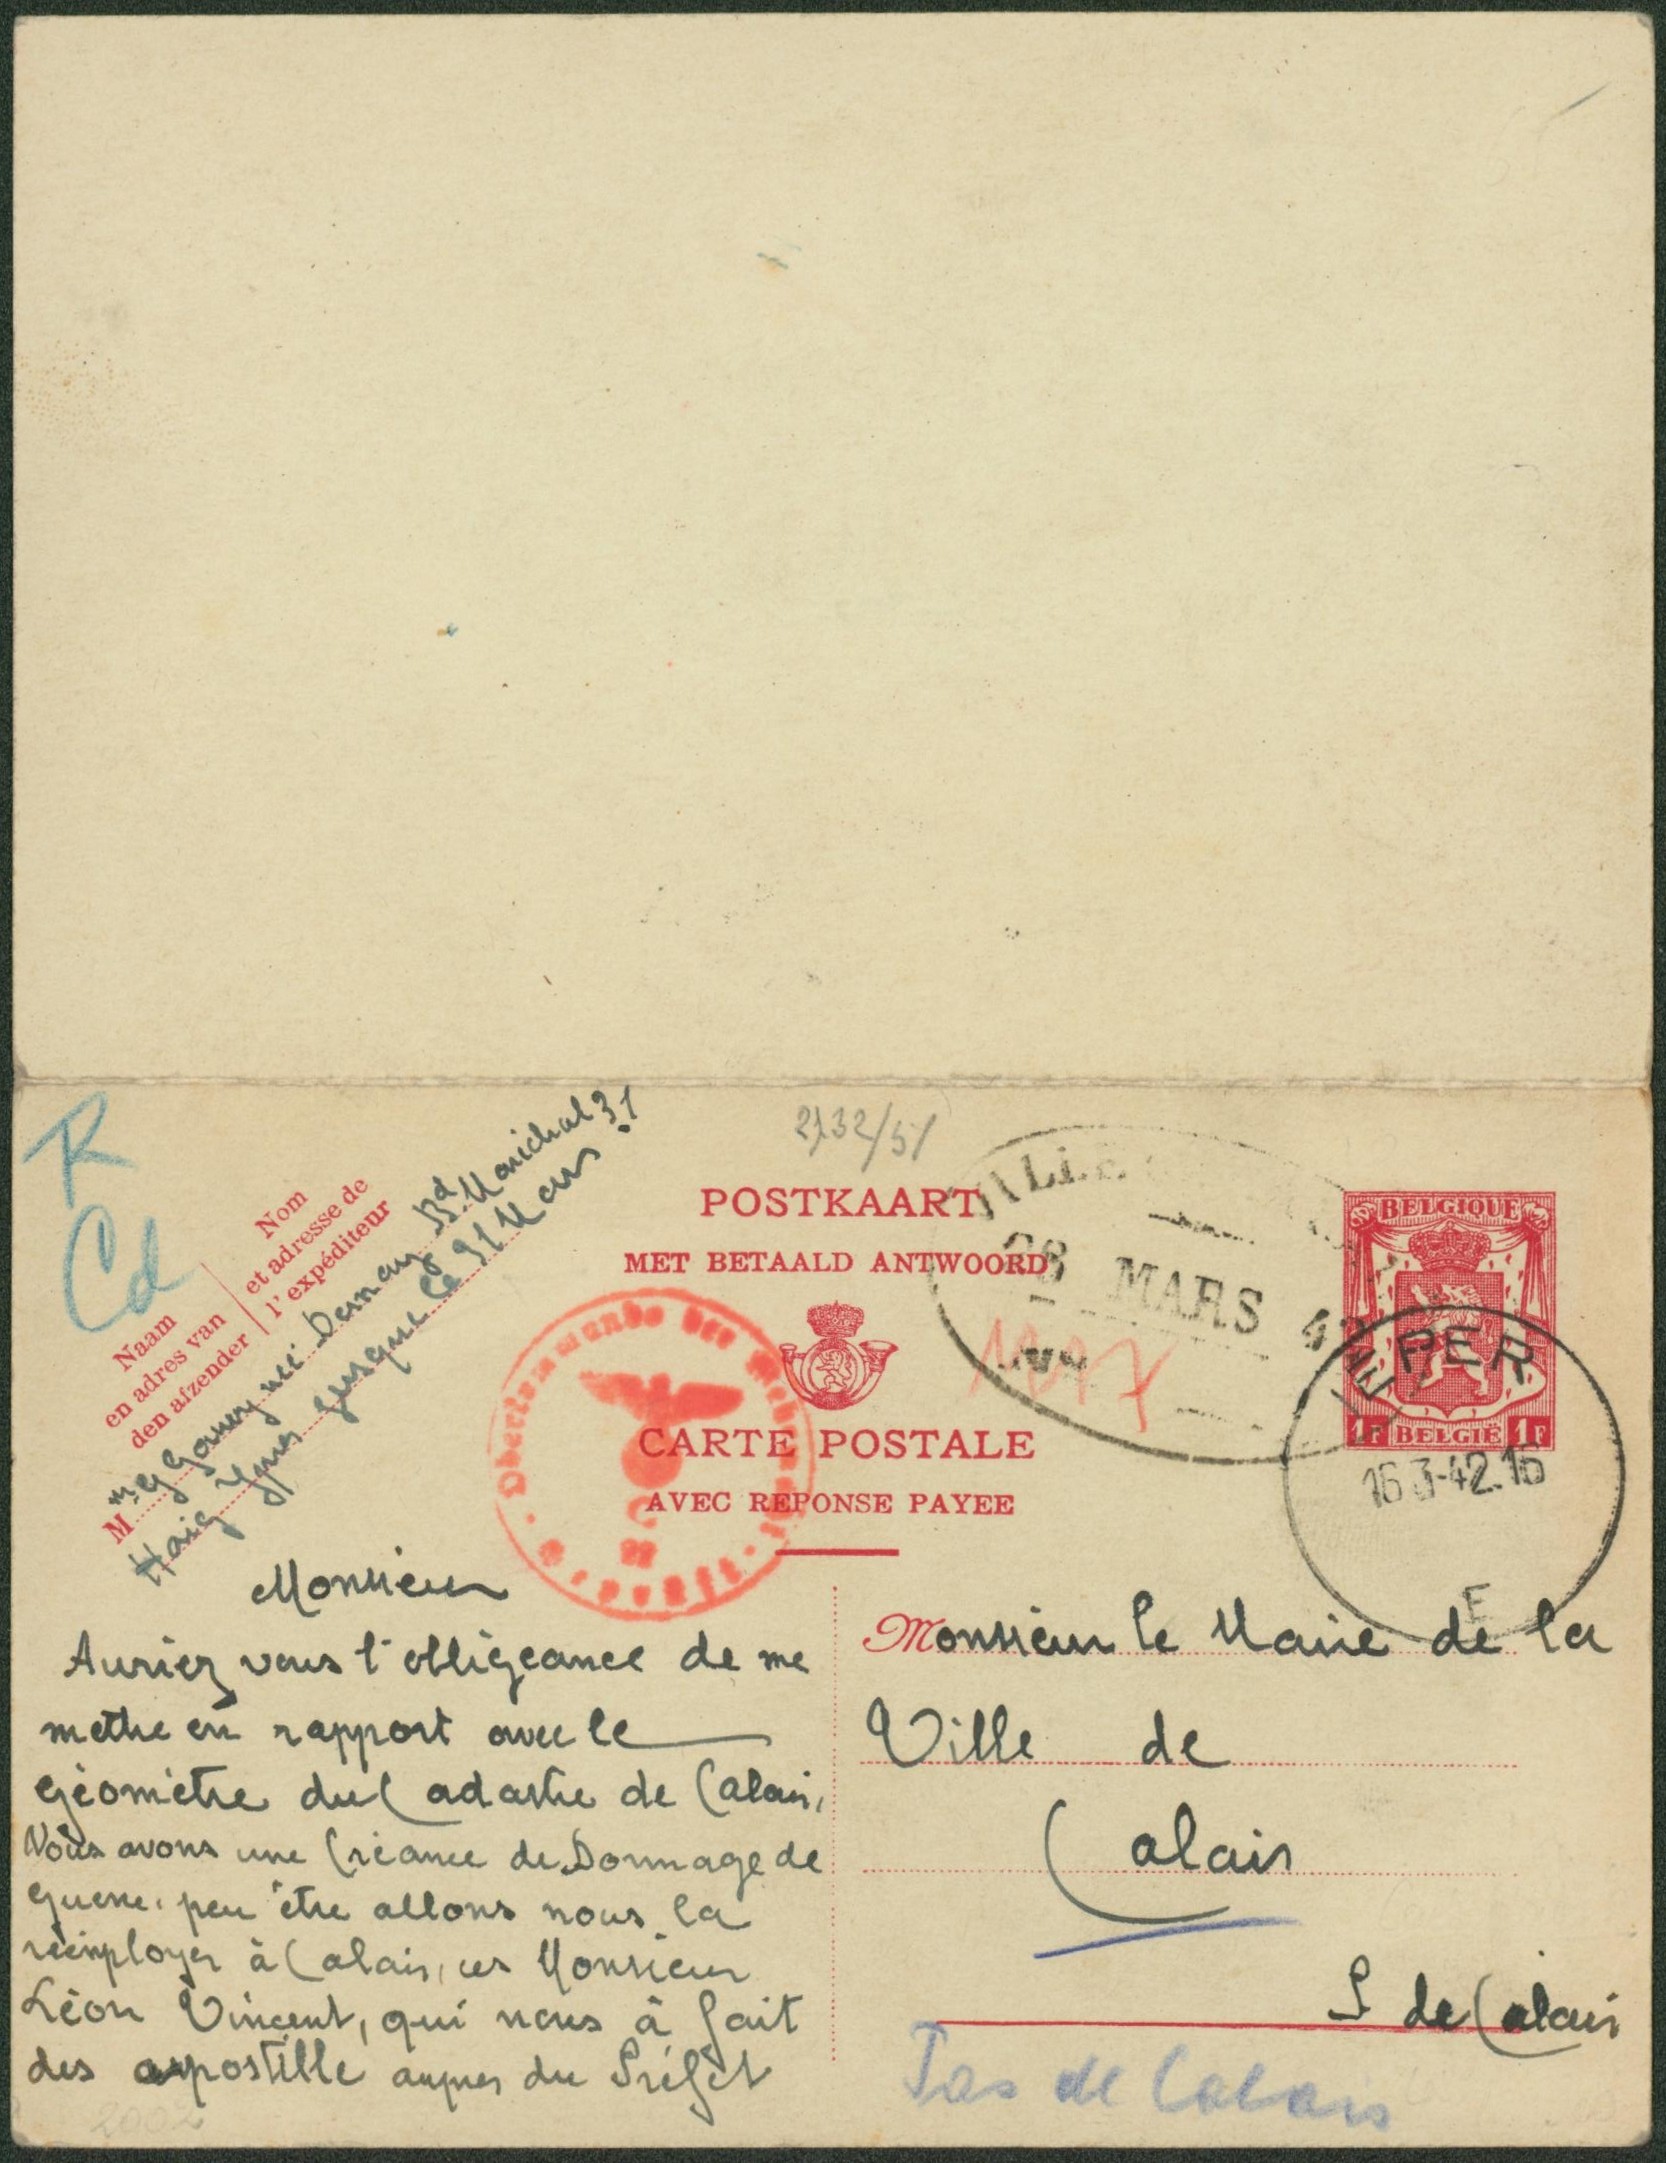 R
Cd
Naam
en adres van
den afzender
Nom
et adresse de
l'expéditeur
Mme G Gomez née Bd Marichal 31
Haig Ypres jusque le 31 Mars
2132/51
POSTKAART
MET BETAALD ANTWOORD
CARTE POSTALE
AVEC REPONSE PAYEE
28 MARS 42
1197
BELGIQUE
1F BELGIË 1F
IEPER
16-3-42.16
E
Monsieur
Auriez vous l'obligeance de me
mettre en rapport avec le
géomètre du Cadastre de Calais,
Nous avons une Créance de Dommage de
guerre, peu être allons nous la
réemployer à Calais, ces Monsieur
Léon Vincent, qui nous à fait
des apostille aupres du Préfet
Monsieur le Maire de la
Ville de
Calais
P de Calais
Pas de Calais
2002